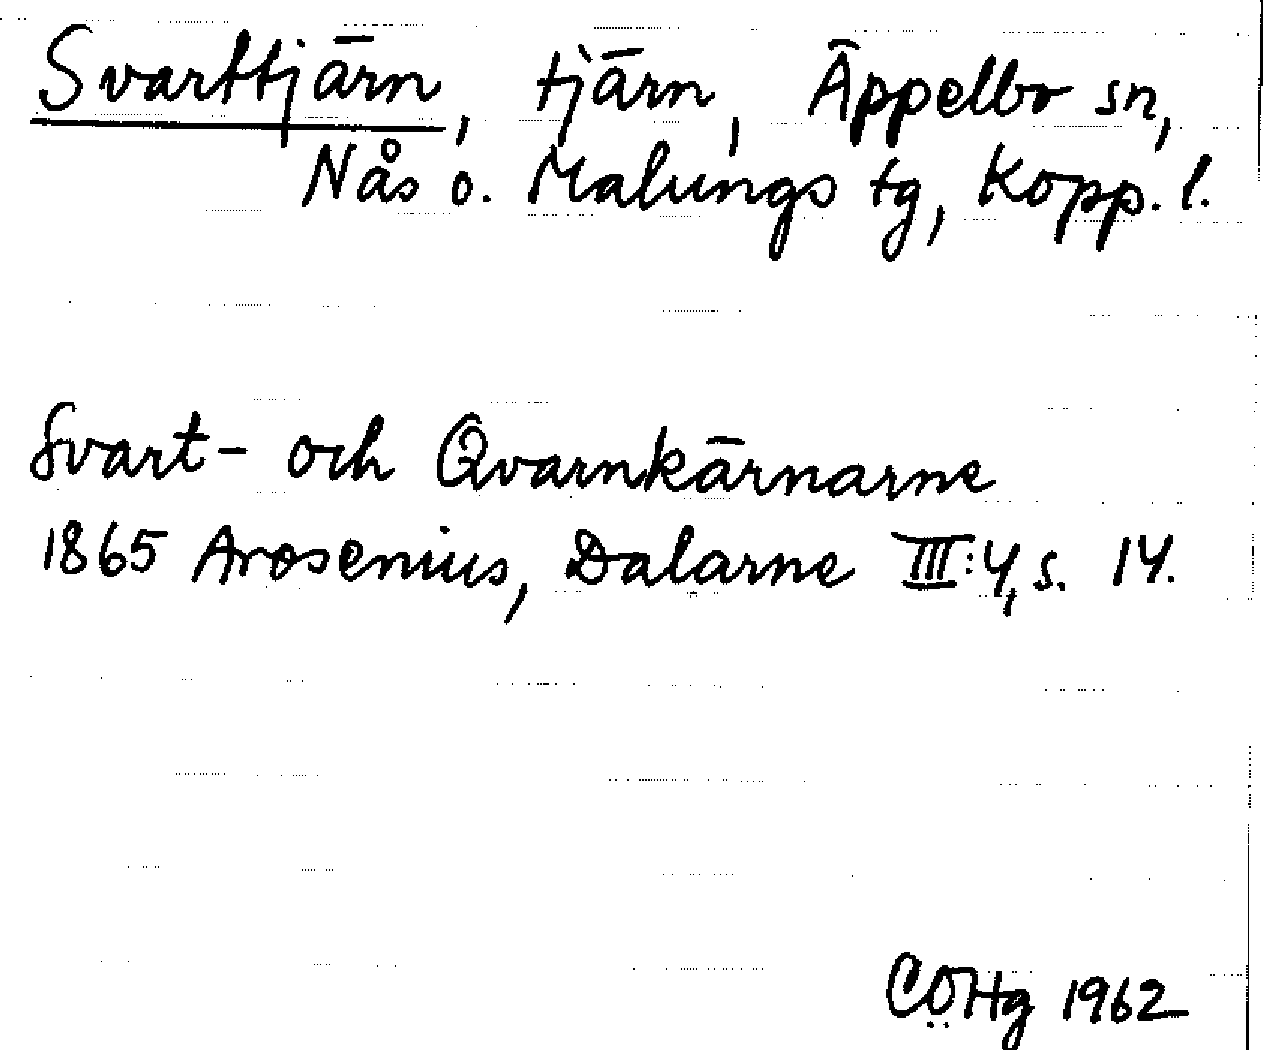 Svarttjärn, tjärn, Äppelbo sn,
Nås o. Malungs tg, Kopp. l.
Svart- och Qvarnkärnarne
1865 Arosenius, Dalarne III:4, s. 14.
CÖHg 1962